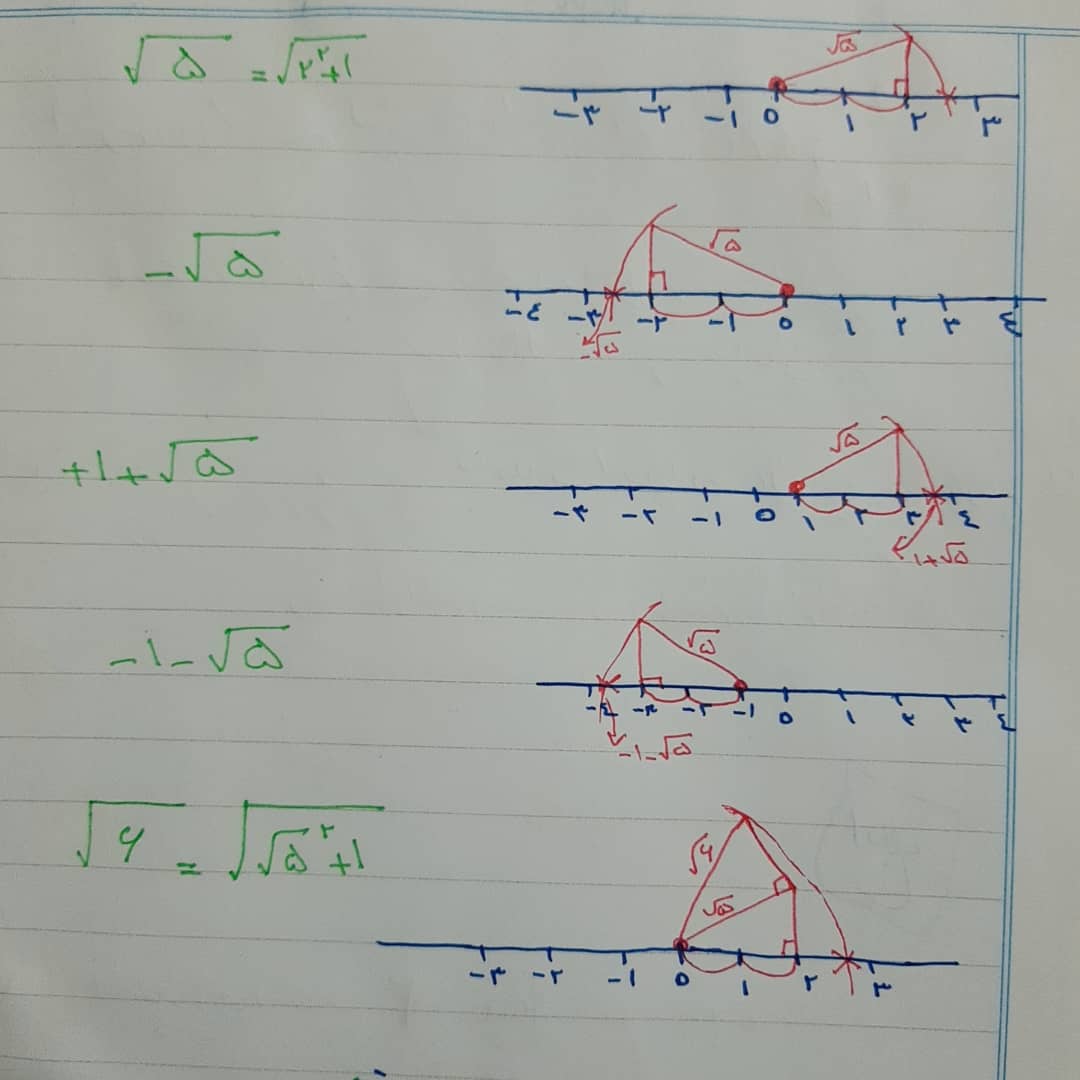 √۵ = √۲²+۱
√۵
-۳ -۲ -۱ ۰ ۱ ۲ ۳
-√۵
√۵
-٤ -۳ -۲ -۱ ۰ ۱ ۲ ۳ ٤
-√۵
+۱+√۵
√۵
-۳ -۲ -۱ ۰ ۱ ۲ ۳ ٤
۱+√۵
-۱-√۵
√۵
-٤ -۳ -۲ -۱ ۰ ۱ ۲ ۳ ٤
-۱-√۵
√۶ = √√۵²+۱
√۶
√۵
-۳ -۲ -۱ ۰ ۱ ۲ ۳